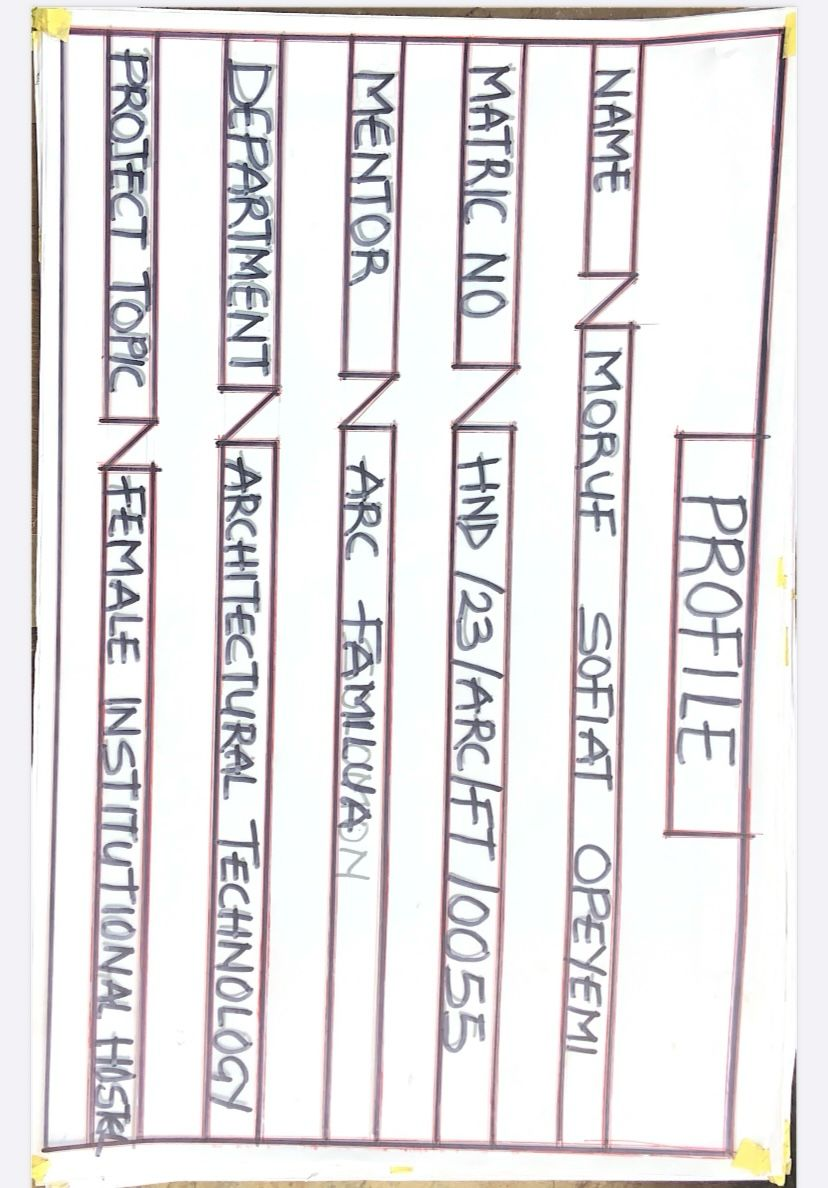 PROFILE
NAME MORUF SOFIAT OPEYEMI
MATRIC NO HND /23/ARC/FT/0055
MENTOR ARC FAMILUA
DEPARTMENT ARCHITECTURAL TECHNOLOGY
PROJECT TOPIC FEMALE INSTITUTIONAL HOSTEL